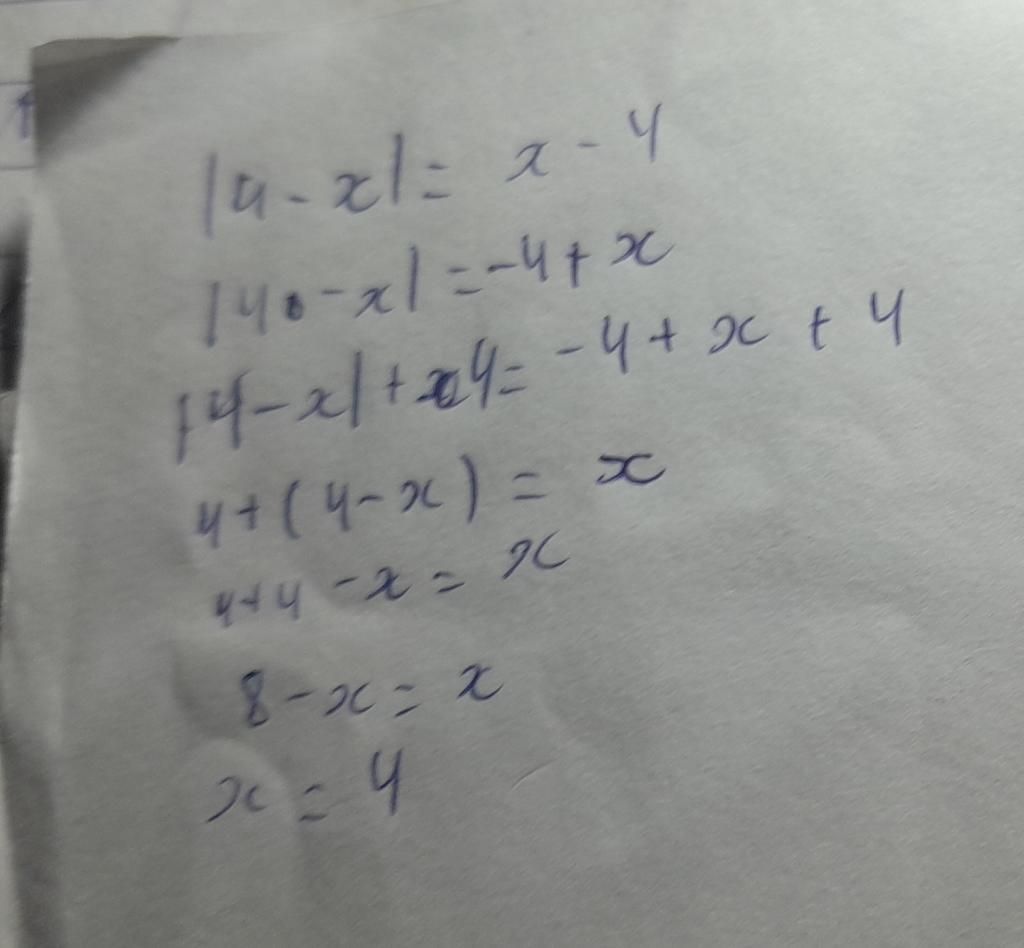 |4-x| = x-4
|4-x| = -4+x
|4-x|+4 = -4+x+4
4+(4-x) = x
4+4-x = x
8-x = x
x = 4